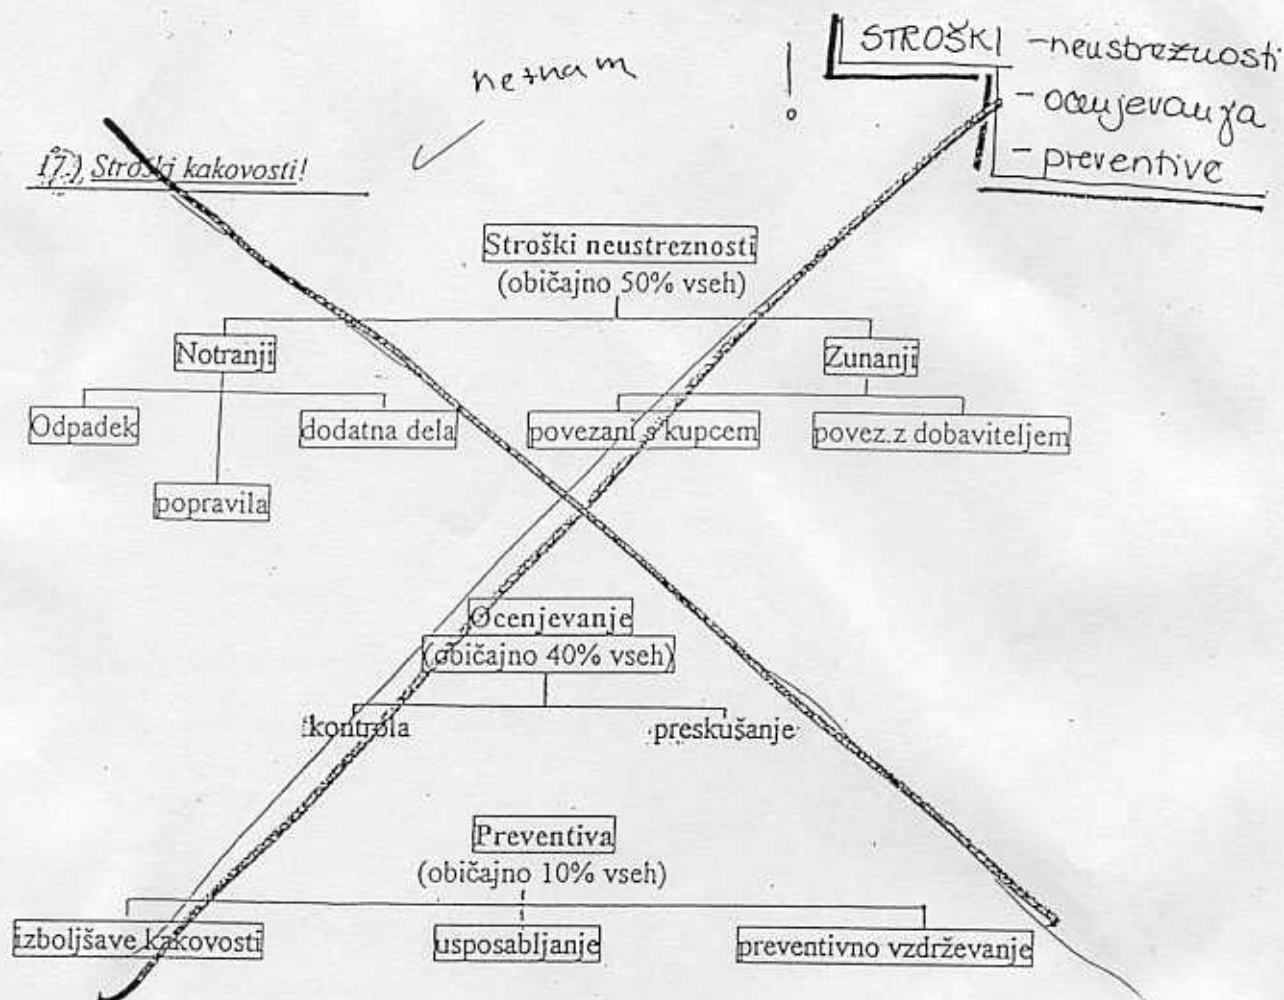 neznam
!
STROŠKI - neustreznosti
- ocenjevanja
- preventive
17.) Stroški kakovosti!
Stroški neustreznosti
(običajno 50% vseh)
Notranji Zunanji
Odpadek dodatna dela povezani s kupcem povez.z dobaviteljem
popravila
Ocenjevanje
(običajno 40% vseh)
kontrola preskušanje
Preventiva
(običajno 10% vseh)
izboljšave kakovosti usposabljanje preventivno vzdrževanje